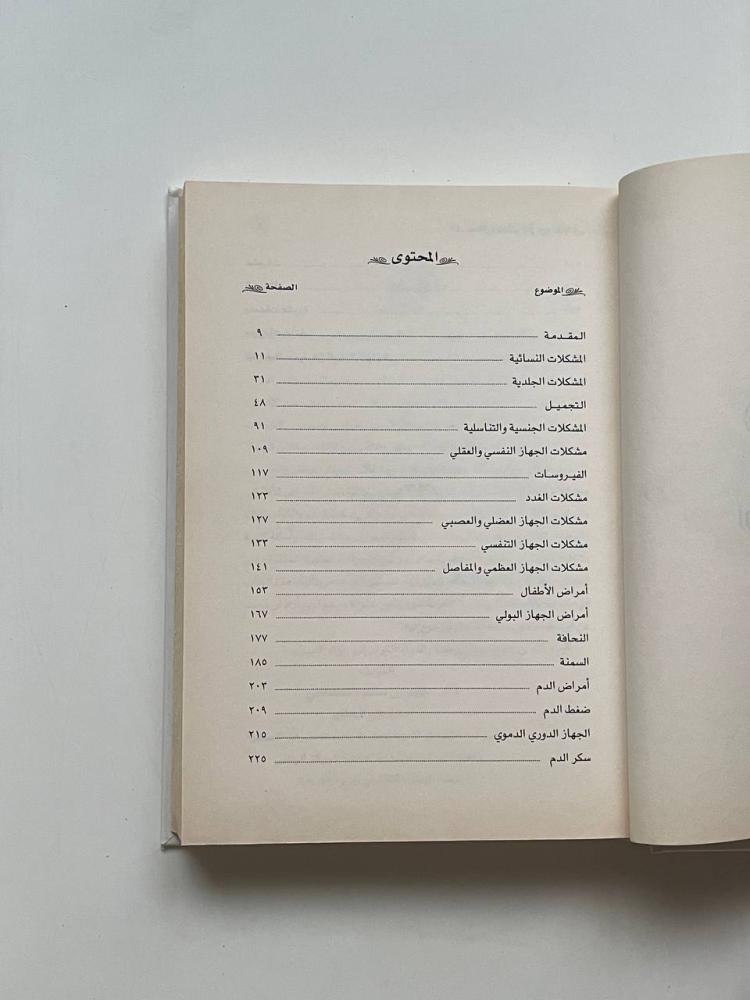 المحتوى
الموضوع الصفحة
المقدمة ٩
المشكلات النسائية ١١
المشكلات الجلدية ٣١
التجميل ٤٨
المشكلات الجنسية والتناسلية ٩١
مشكلات الجهاز النفسي والعقلي ١٠٩
الفيروسات ١١٧
مشكلات الغدد ١٢٣
مشكلات الجهاز العضلي والعصبي ١٢٧
مشكلات الجهاز التنفسي ١٣٣
مشكلات الجهاز العظمي والمفاصل ١٤١
أمراض الأطفال ١٥٣
أمراض الجهاز البولي ١٦٧
النحافة ١٧٧
السمنة ١٨٥
أمراض الدم ٢٠٣
ضغط الدم ٢٠٩
الجهاز الدوري الدموي ٢١٥
سكر الدم ٢٢٥